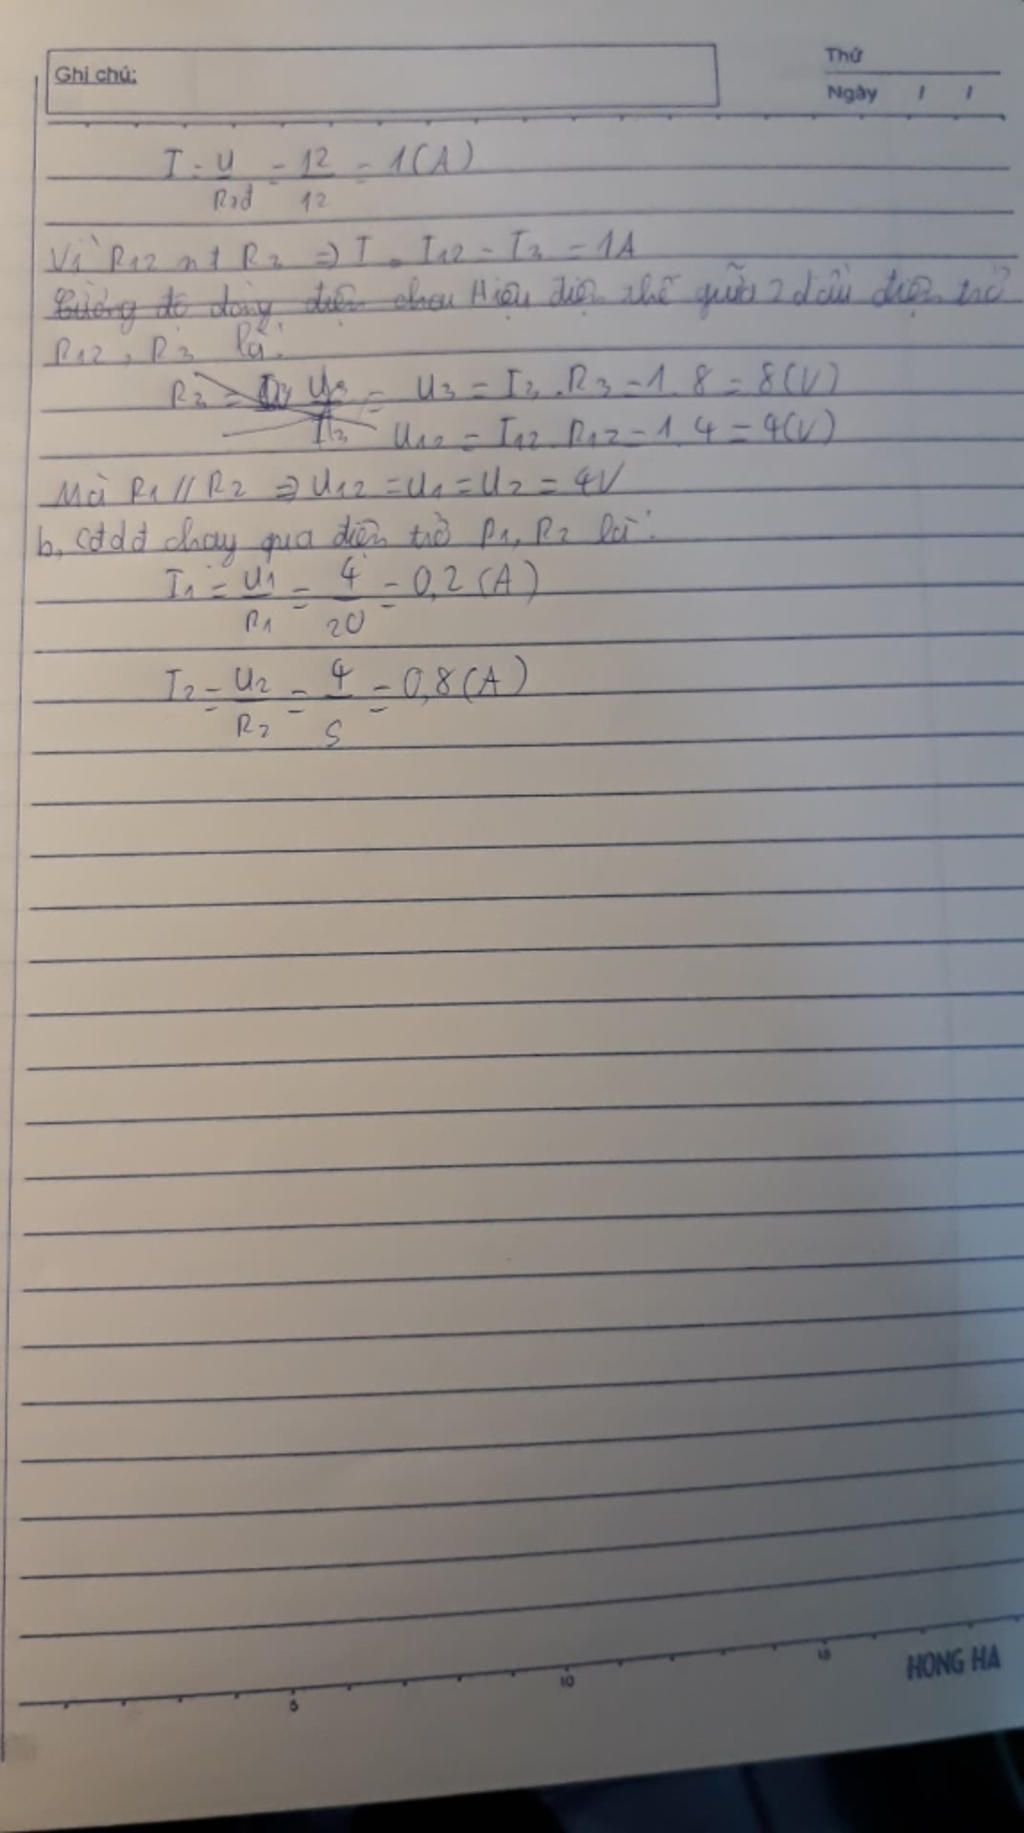 Ghi chú:
Thứ
Ngày / /
I = U/Rtđ = 12/12 = 1(A)
Vì R12 nt R3 => I = I12 = I3 = 1A
Cường độ dòng điện chạy Hiệu điện thế giữa 2 đầu điện trở
R12, R3 là:
R3 = U3/I3 = U3 = I3 . R3 = 1 . 8 = 8(V)
U12 = I12 . R12 = 1 . 4 = 4(V)
Mà R1 // R2 => U12 = U1 = U2 = 4V
b, Cđdđ chạy qua điện trở R1, R2 là:
I1 = U1/R1 = 4/20 = 0,2 (A)
I2 = U2/R2 = 4/5 = 0,8 (A)
5 10 15
HONG HA